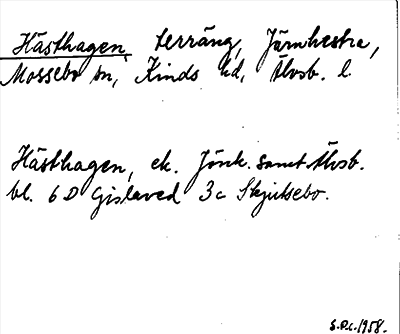 Hästhagen, terräng, Järnhestra,
Mossebo sn, Kinds hd, Älvsb. l.
Hästhagen, ek. Jönk. samt Älvsb.
bl. 6 D Gislaved 3c Skjutsebo.
S.D.C. 1958.